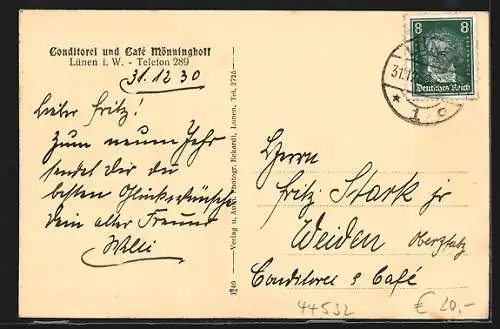 Conditorei und Café Mönninghoff
Lünen i. W. - Telefon 289
31.12 30
Lieber Fritz!
Zum neuen Jahr
sendet Dir die
besten Glückswünsche
Dein alter Freund
Willi
1240 — Verlag u. Auf. Photogr. Eckardt, Lünen, Tel. 2725
8 8
Deutsches Reich
31.12
* 1 c
Herrn
Fritz Stark jr
Weiden Oberpfalz
Conditorei & Café
44532
€ 20.-